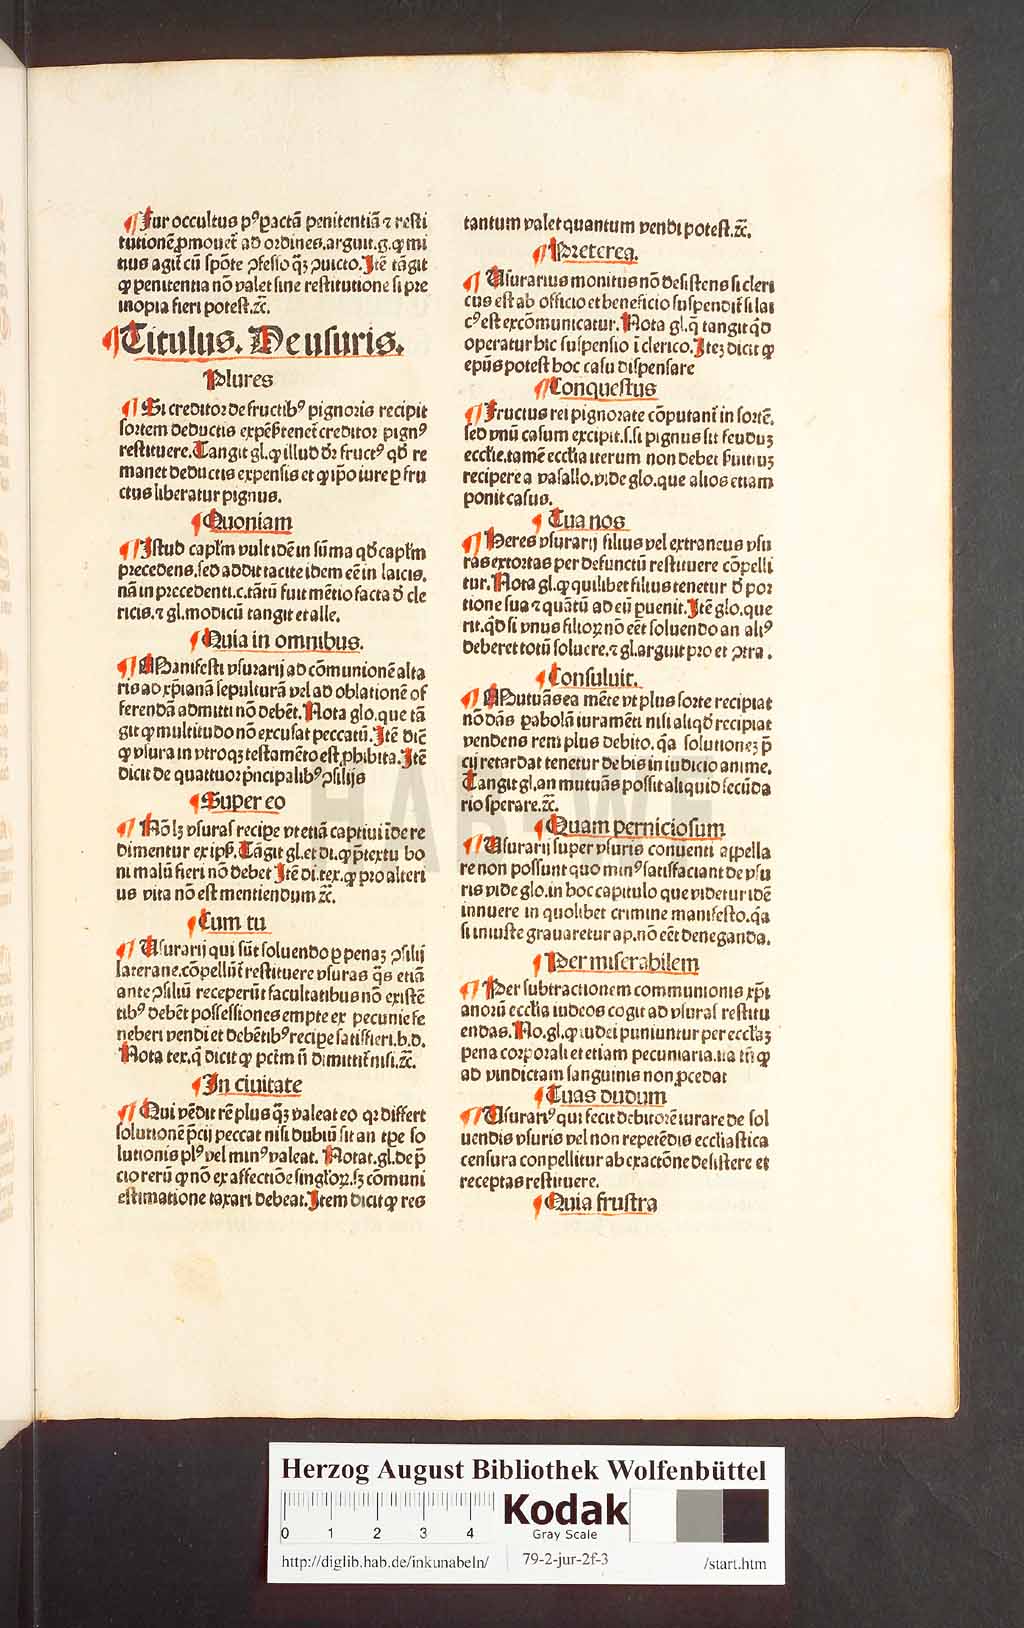 ¶ Fur occultus pꝰ ꝑactā penitentiā ⁊ resti
tutionē ꝓmouet᷑ ad ordines. arguit. g. ꝙ mi
tius agit᷑ cū spōte ꝯfesso qȝ ꝯuicto. Itē tāgit
ꝙ penitentia nō valet sine restitutione si pre
inopia fieri potest. ⁊c̄.
¶ Titulus. De usuris.
Plures
¶ Si creditor de fructibꝰ pignoris recipit
sortem deductis expēs̄ tenet᷑ creditor pignꝰ
restituere. Tangit gl. ꝙ illud dr̄ fructꝰ qd̄ re
manet deductis expensis et ꝙ ip̄o iure ꝑ fru
ctus liberatur pignus.
¶ Quoniam
¶ Istud capl̄m vult idē in sūma qd̄ capl̄m
precedens. sed addit tacite idem eē in laicis.
nā in precedenti. c. tātū fuit mētio facta d̄ cle
ricis. ⁊ gl. modicū tangit et alle.
¶ Quia in omnibus.
¶ Manifesti vsurarij ad cōmunionē alta
ris ad xp̄ianā sepulturā vel ad oblationē of
ferendā admitti nō debēt. Nota glo. que tā
git ꝙ multitudo nō excusat peccatū. Itē dic̄
ꝙ vsura in vtroqȝ testamēto est ꝓhibita. Itē
dicit de quattuor pͥncipalibꝰ ꝯsilijs
¶ Super eo
¶ Nō lȝ vsuras recipe vt etiā captiui īde re
dimentur ex ip̄s. Tāgit gl. et di. ꝙ p̄textu bo
ni malū fieri nō debet Itē di. tex. ꝙ pro alteri
us vita nō est mentiendum ⁊c̄.
¶ Cum tu
¶ Vsurarij qui sūt soluendo ꝑ penaȝ ꝯsilij
laterane. cōpellūt᷑ restituere vsuras q̄s etiā
ante ꝯsiliū receperūt facultatibus nō existē
tibꝰ debēt possessiones empte ex pecunie fe
neberi vendi et debētibꝰ recipe satisfieri. b. d.
Nota tex. q̄ dicit ꝙ pctm̄ ñ dimittit᷑ nisi. ⁊c̄.
¶ In ciuitate
¶ Qui vēdit rē plus qȝ valeat eo qꝛ differt
solutionē p̄cij peccat nisi dubiū sit an tp̄e so
lutionis plꝰ vel minꝰ valeat. Notat. gl. de p̄
cio rerū ꝙ nō ex affectiōe singloꝝ. sȝ cōmuni
estimatione taxari debeat. Item dicit ꝙ res
tantum valet quantum vendi potest. ⁊c̄.
¶ Preterea.
¶ Vsurarius monitus nō desistens si cleri
cus est ab officio et beneficio suspendit᷑ si lai
cꝰ est excōmunicatur. Nota gl. q̄ tangit qd̄
operatur hic suspensio ī clerico. Iteȝ dicit ꝙ
ep̄us potest hoc casu dispensare
¶ Conquestus
¶ Fructus rei pignorate cōputant᷑ in sortē.
sed vnū casum excipit. s. si pignus sit feuduȝ
ecclīe. tamē ecclīa iterum non debet s̄uitiuȝ
recipere a vasallo. vide glo. que alios etiam
ponit casus.
¶ Tua nos
¶ Heres vsurarij filius vel extraneus vsu
ras extortas per defunctū restituere cōpelli
tur. Nota gl. ꝙ quilibet filius tenetur d̄ por
tione sua ⁊ quātū ad eū ꝑuenit. Itē glo. que
rit. qd̄ si vnus filioꝝ nō eēt soluendo an aliꝰ
deberet totū soluere. ⁊ gl. arguit pro et ꝯtra.
¶ Consuluit.
¶ Mutuās ea mēte vt plus sorte recipiat
nō dās ꝑabolā iuramēti nisi aliqd̄ recipiat
vendens rem plus debito. q̄a solutioneȝ p̄
cij retardat tenetur de his in iudicio anime.
Tangit gl. an mutuās possit aliquid secūda
rio sperare. ⁊c̄.
¶ Quam perniciosum
¶ Vsurarij super vsuris conuenti appella
re non possunt quo minꝰ satisfaciant de vsu
ris vide glo. in hoc capitulo que videtur idē
innuere in quolibet crimine manifesto. q̄a
si iniuste grauaretur ap. nō eēt deneganda.
¶ Per miserabilem
¶ Per subtractionem communionis xp̄i
anorū ecclīa iudeos cogit ad vsuras restitu
endas. No. gl. ꝙ iudei puniuntur per ecclīaȝ
pena corporali et etiam pecuniaria. ita tn̄ ꝙ
ad vindictam sanguinis non ꝓcedat
¶ Tuas dudum
¶ Vsurariꝰ qui fecit debitorē iurare de sol
uendis vsuris vel non repetēdis ecclīastica
censura conpellitur ab exactōne desistere et
receptas restituere.
¶ Quia frustra
HAB-WF
Herzog August Bibliothek Wolfenbüttel
0 1 2 3 4
Kodak
Gray Scale
http://diglib.hab.de/inkunabeln/ 79-2-jur-2f-3 /start.htm